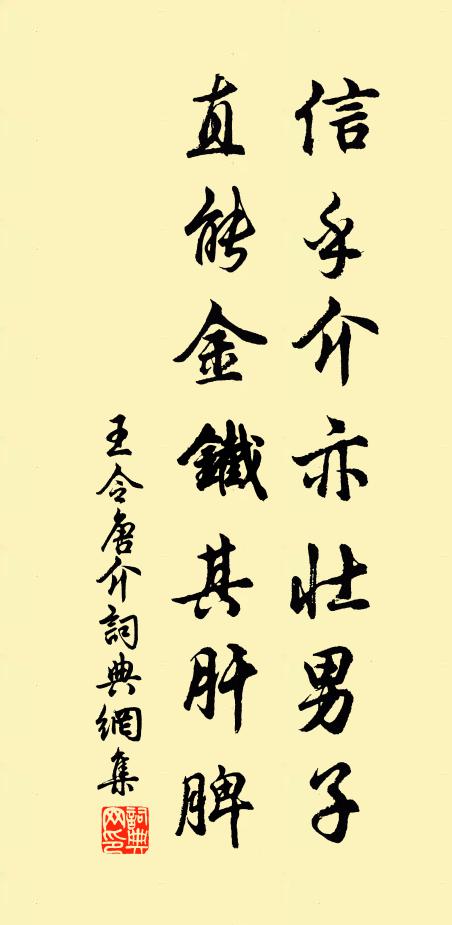 信乎介亦壮男子
直能金鐵其肝脾
王令唐介詞典網集
詞典網印